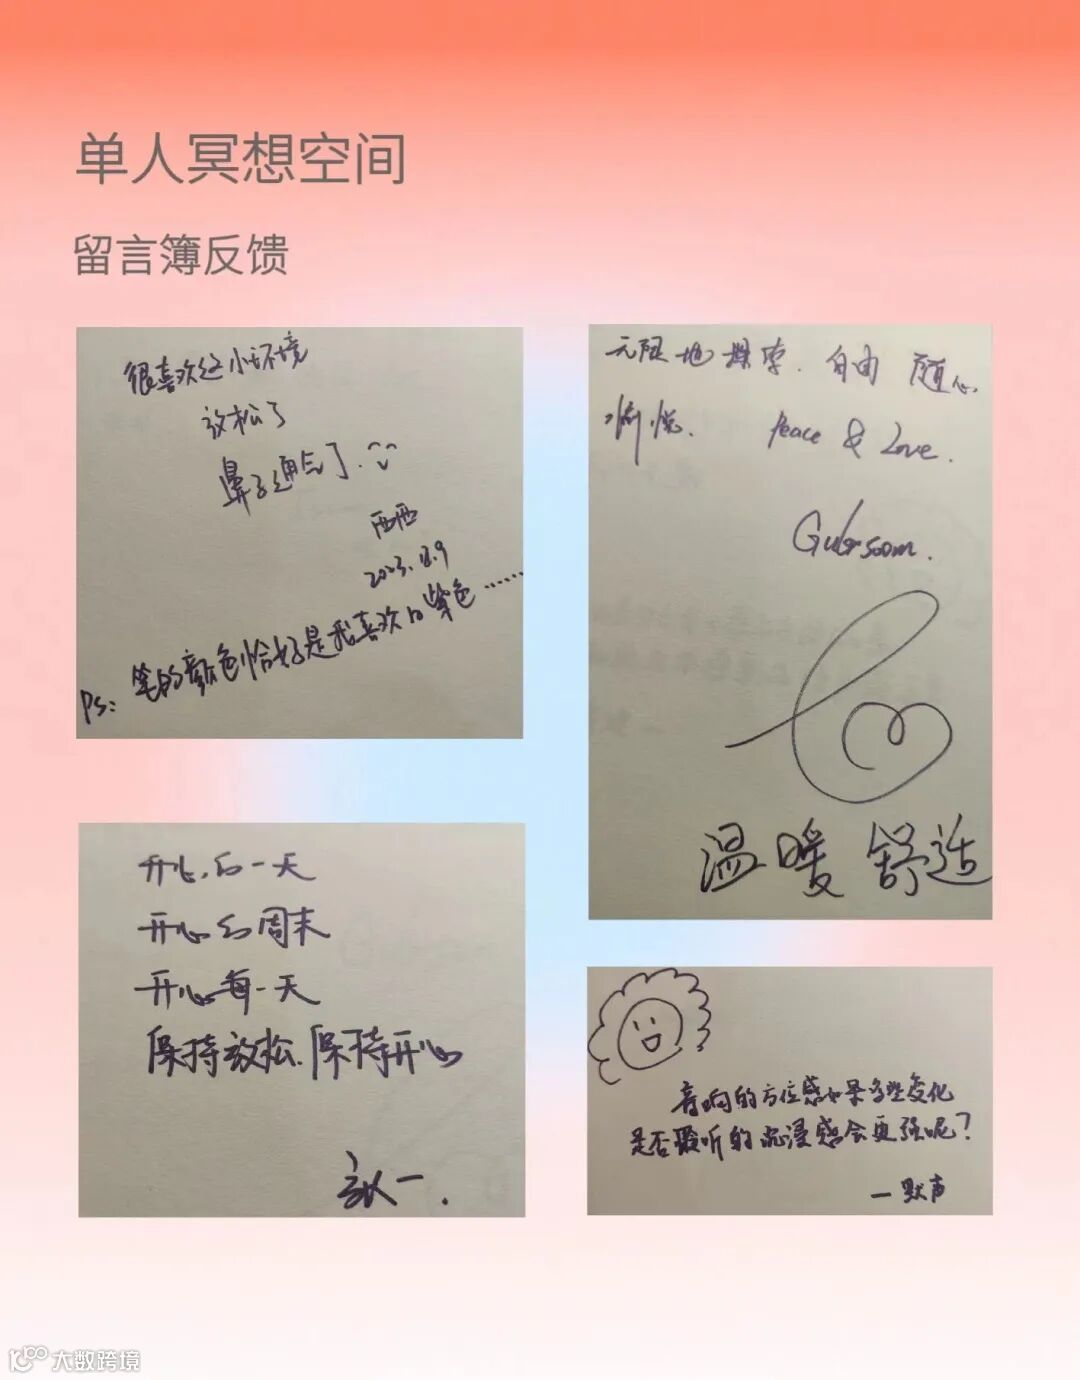 单人冥想空间
留言簿反馈
很喜欢这小环境
放松了
鼻子通气了.
西西
2023.12.9
Ps: 笔的颜色恰好是我喜欢的紫色……
无限地探索. 自由 随心
愉悦. Peace & Love.
温暖 舒适
开心的一天
开心的周末
开心每一天
保持放松.保持开心
音响的方位感如果多些变化
是否聆听的沉浸感会更强呢?
—默声
大数跨境